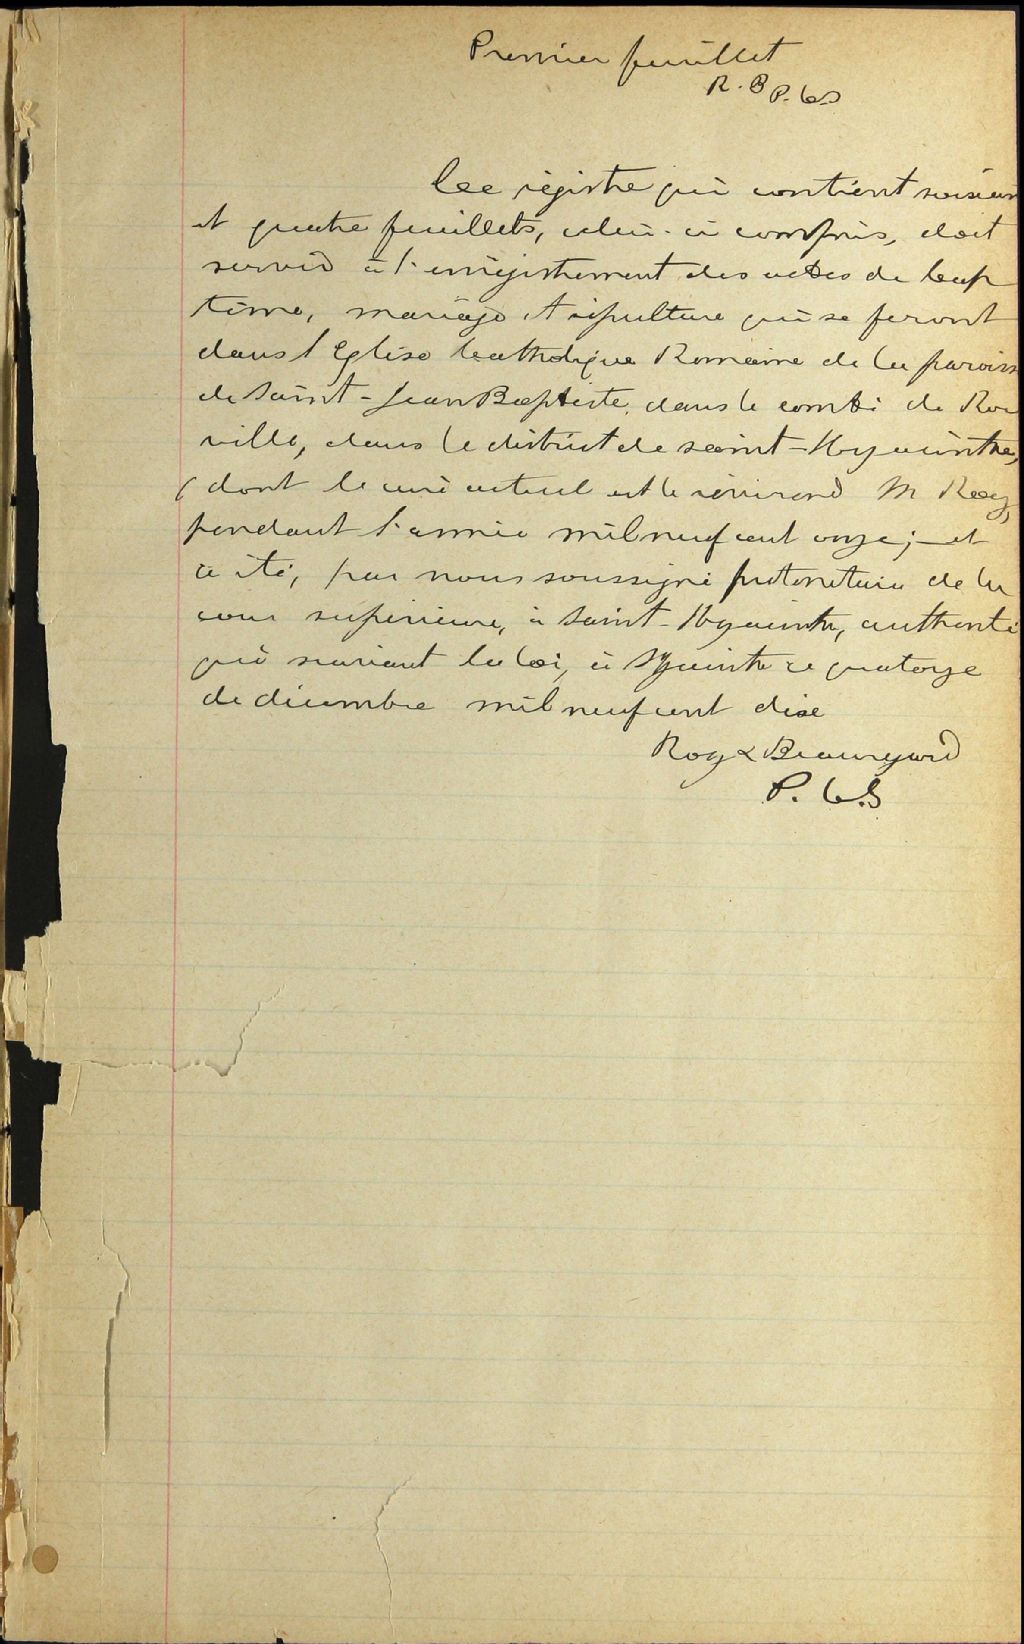 Premier feuillet
R. B P. C S
Ce régistre qui contient soixan
et quatre feuillets, celui-ci compris, doit
servir à l'enrégistrement des actes de bap
tême, mariage et sépulture qui se feront
dans l'Eglise Catholique Romaine de la paroiss
de Saint-Jean Baptiste, dans le comté de Rou
ville, dans le district de saint-Hyacinthe,
(dont le curé actuel est le révérend M Roy,
pendant l'année mil neuf cent onze; et
a été, par nous soussigné protonotaire de la
cour supérieure, à Saint-Hyacinthe, authenti
qué suivant la loi, à St Hyacinthe ce quatorze
de décembre mil neuf cent dix
Roy & Beauregard
P. C. S